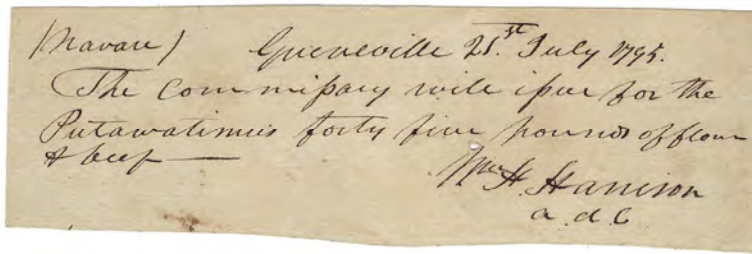 (Navarr) Greeneville 21st July 1795.
The commissary will issue for the
Putawatimies forty five pounds of flour
& beef —
Wm H. Harrison
a. d. C